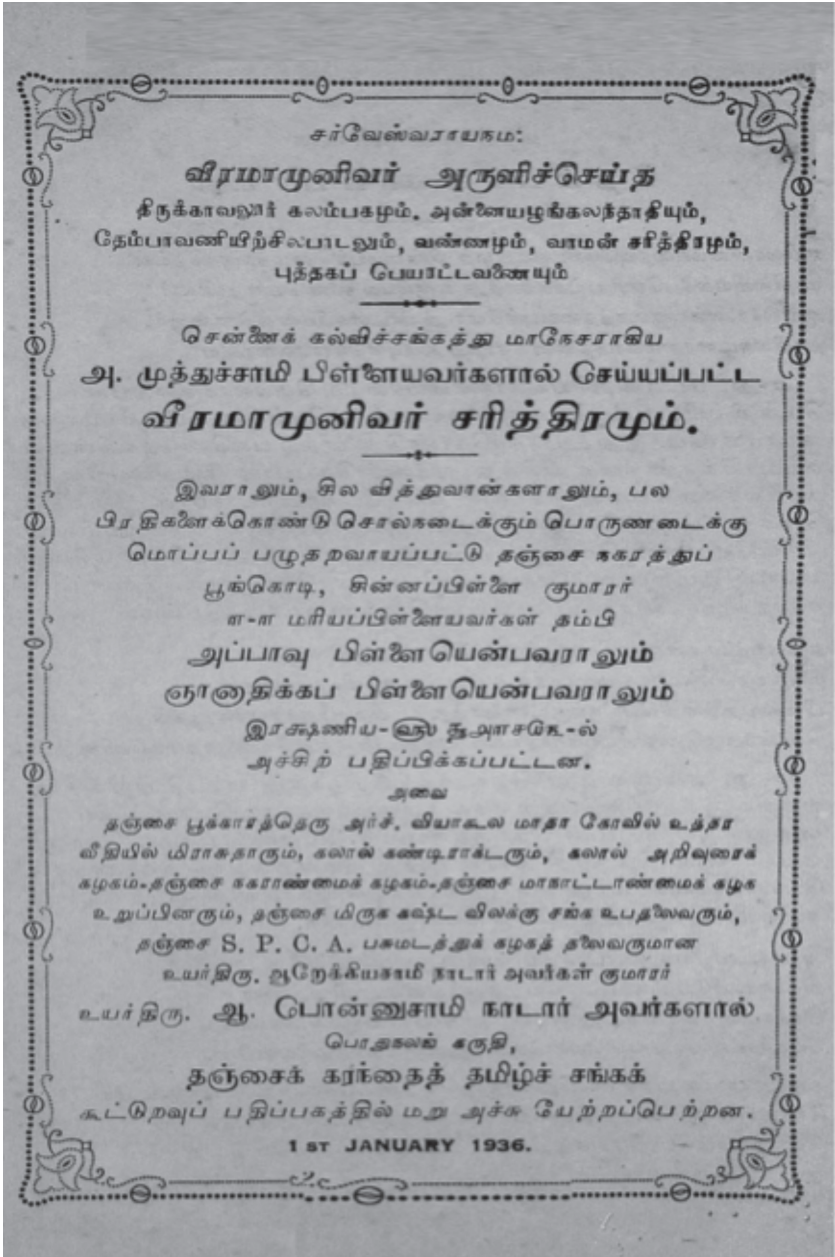 சர்வேஸ்வராயநம:
வீரமாமுனிவர் அருளிச்செய்த
திருக்காவலூர் கலம்பகமும். அன்னையழுங்கலந்தாதியும்,
தேம்பாவணியிற்சிலபாடலும், வண்ணமும், வாமன் சரித்திரமும்,
புத்தகப் பேயாட்டவணையும்
சென்னைக் கல்விச்சங்கத்து மாநேசராகிய
அ. முத்துச்சாமி பிள்ளையவர்களால் செய்யப்பட்ட
வீரமாமுனிவர் சரித்திரமும்.
இவராலும், சில வித்துவான்களாலும், பல
பிரதிகளைக்கொண்டு சொல்நடைக்கும் பொருணடைக்கு
மொப்பப் பழுதறவாயப்பட்டு தஞ்சை நகரத்துப்
பூங்கொடி, சின்னப்பிள்ளை குமாரர்
ஏ-ஏ மரியப்பிள்ளையவர்கள் தம்பி
அப்பாவு பிள்ளையென்பவராலும்
ஞானாதிக்கப் பிள்ளையென்பவராலும்
இரக்ஷணிய-௵
அச்சிற் பதிப்பிக்கப்பட்டன.
அவை
தஞ்சை பூக்காரத்தெரு அர்ச். வியாகூல மாதா கோவில் உத்தர
வீதியில் மிராசுதாரும், கலால் கண்டிராக்டரும், கலால் அறிவுரைக்
கழகம்-தஞ்சை நகராண்மைக் கழகம்-தஞ்சை மாநாட்டாண்மைக் கழக
உறுப்பினரும், தஞ்சை மிருக கஷ்ட விலக்கு சங்க உபதலைவரும்,
தஞ்சை S. P. C. A. பசுமடத்துக் கழகத் தலைவருமான
உயர்திரு. ஆறோக்கியசாமி நாடார் அவர்கள் குமாரர்
உயர்திரு. ஆ. பொன்னுசாமி நாடார் அவர்களால்
பொதுநலங் கருதி,
தஞ்சைக் கரந்தைத் தமிழ்ச் சங்கக்
கூட்டுறவுப் பதிப்பகத்தில் மறு அச்சு யேற்றப்பெற்றன.
1 ST JANUARY 1936.